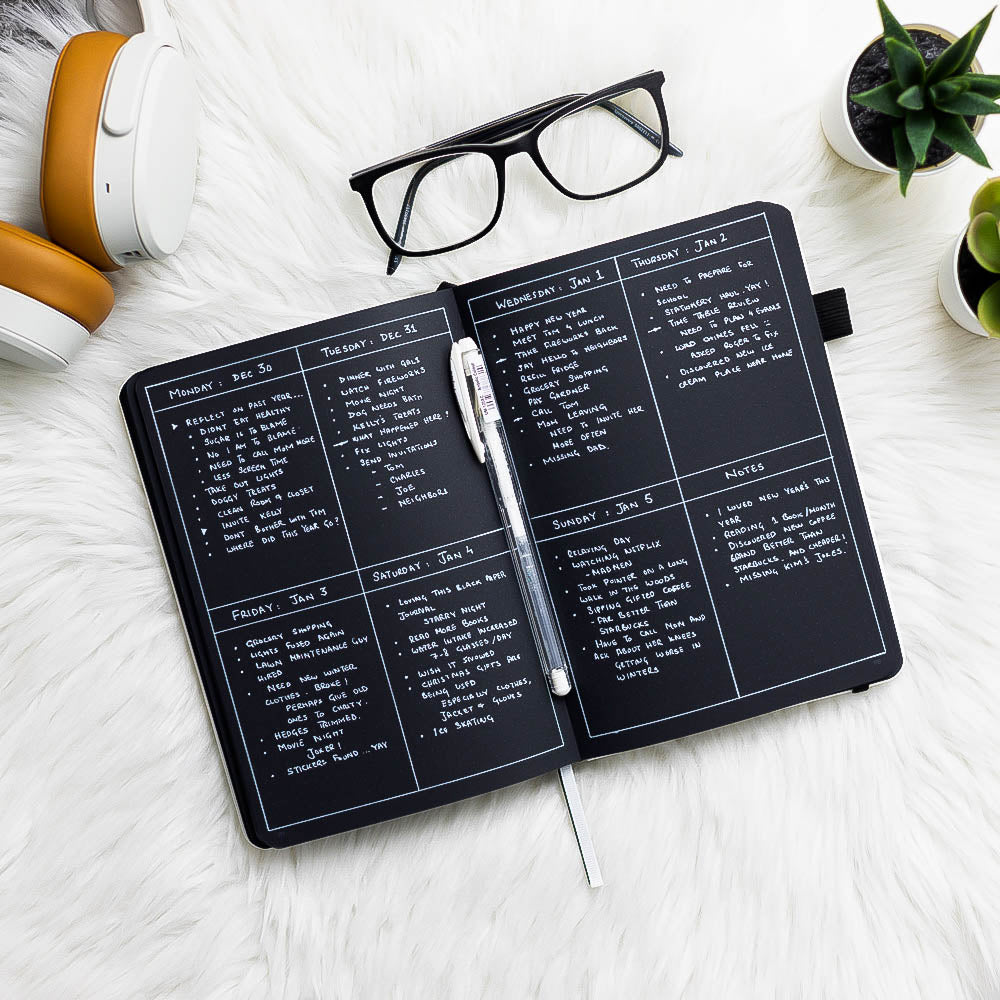 MONDAY : DEC 30
REFLECT ON PAST YEAR...
DIDNT EAT HEALTHY
SUGAR IS TO BLAME
NO I AM TO BLAME.
NEED TO CALL MOM MORE
LESS SCREEN TIME
TAKE OUT LIGHTS
DOGGY TREATS
CLEAN ROOM & CLOSET
INVITE KELLY
DONT BOTHER WITH TIM
WHERE DID THIS YEAR GO?
TUESDAY : DEC 31
DINNER WITH GALS
WATCH FIREWORKS
MOVIE NIGHT
DOG NEEDS BATH
KELLY'S TREATS
WHAT HAPPENED HERE!
FIX LIGHTS
SEND INVITATIONS
- TOM
- CHARLES
- JOE
- NEIGHBORS
FRIDAY : JAN 3
GROCERY SHOPPING
LIGHTS FUSED AGAIN
LAWN MAINTENANCE GUY
HIRED
NEED NEW WINTER
CLOTHES. BROKE!
PERHAPS GIVE OLD
ONES TO CHARITY.
HEDGES TRIMMED.
MOVIE NIGHT
JOKER!
STICKERS FOUND...YAY
SATURDAY : JAN 4
LOVING THIS BLACK PAPER
JOURNAL
STARRY NIGHT
READ MORE BOOKS
WATER INTAKE INCREASED
7-8 GLASSES/DAY
WISH IT SNOWED
CHRISTMAS GIFTS ARE
BEING USED
ESPECIALLY CLOTHES,
JACKET & GLOVES
ICE SKATING
WEDNESDAY : JAN 1
HAPPY NEW YEAR
MEET TIM 4 LUNCH
TAKE FIREWORKS BACK
SAY HELLO TO NEIGHBORS
REFILL FRIDGE
GROCERY SHOPPING
PAY GARDNER
CALL TOM
MOM LEAVING
NEED TO INVITE HER
MORE OFTEN
MISSING DAD.
THURSDAY : JAN 2
NEED TO PREPARE FOR
SCHOOL
STATIONERY HAUL..YAY!
TIME TABLE REVIEW
NEED TO PLAN 4 EXAMS
WIND CHIMES FELL
ASKED ROGER TO FIX
DISCOVERED NEW ICE
CREAM PLACE NEAR HOME
SUNDAY : JAN 5
RELAXING DAY
WATCHING NETFLIX
- MADMEN
TOOK POINTER ON A LONG
WALK IN THE WOODS
SIPPING GIFTED COFFEE
- FAR BETTER THAN
STARBUCKS
HAVE TO CALL MOM AND
ASK ABOUT HER KNEES
GETTING WORSE IN
WINTERS
NOTES
I LOVED NEW YEAR'S THIS
YEAR
READING 1 BOOK/MONTH
DISCOVERED NEW COFFEE
BRAND BETTER THAN
STARBUCKS. AND CHEAPER!
MISSING KIM'S JOKES.